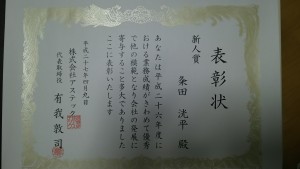 表彰状
新人賞
粂田 洸平 殿
あなたは平成二十六年度に
おける業務成績がきわめて優秀
で他の模範となり会社の発展に
寄与すること多大でありました
ここに表彰いたします
平成二十七年四月九日
株式会社アステック
代表取締役 有我敦司